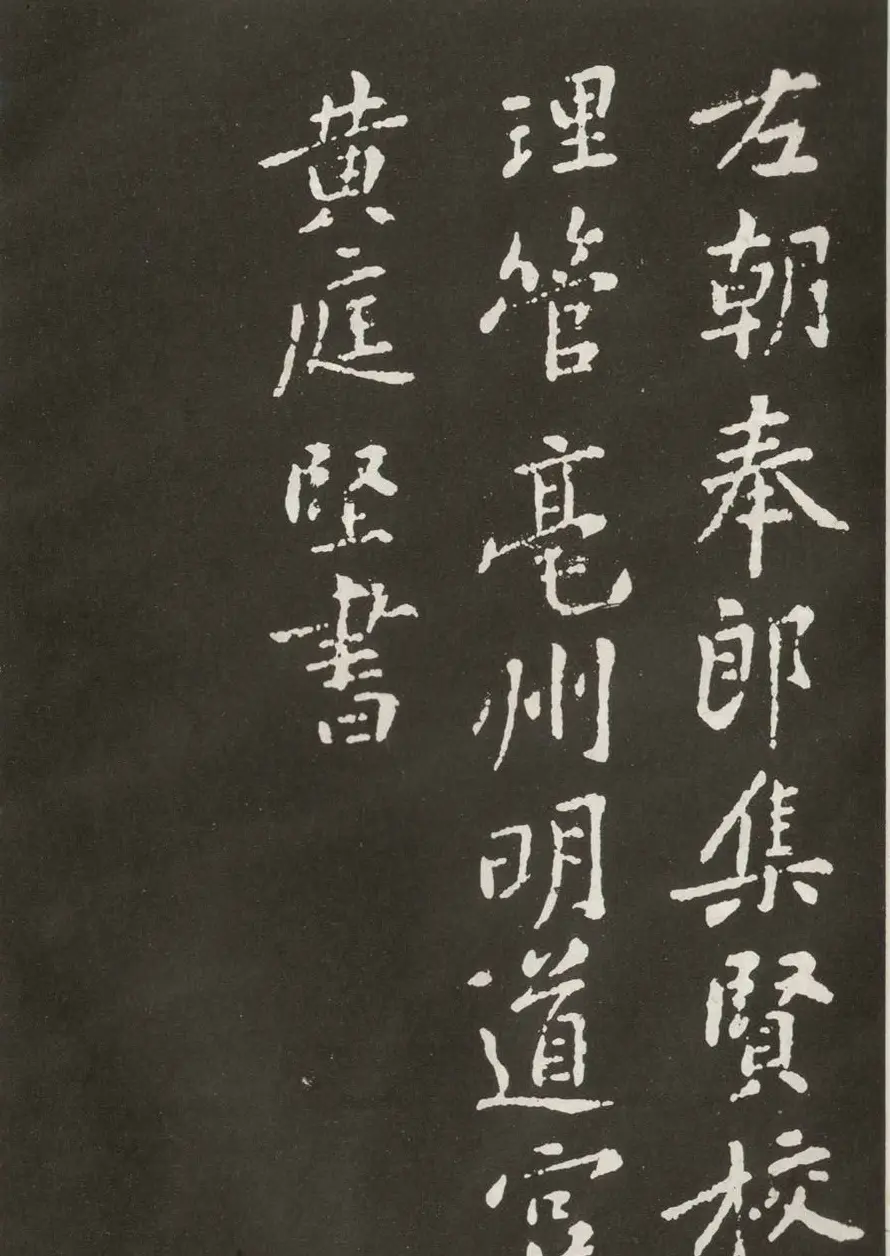 左朝奉郎集賢校
理管亳州明道宮
黃庭堅書